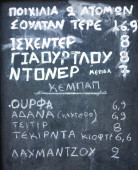 ΠΟΙΚΙΛΙΑ 2 ΑΤΟΜΩΝ
ΣΟΥΛΤΑΝ ΤΕΡΕ 16.9
ΙΣΚΕΝΤΕΡ 8
ΓΙΑΟΥΡΤΛΟΥ 8
ΝΤΟΝΕΡ ΜΕΡΙΔΑ 7
ΚΕΜΠΑΠ
ΟΥΡΦΑ 6,9
ΑΔΑΝΑ (ΚΑΥΤΕΡΟ) 6,9
ΤΕΪΤΙΡ 8
ΤΕΚΙΡΝΤΑ ΚΙΟΦΤΕ 6,6
ΛΑΧΜΑΝΤΖΟΥ 2